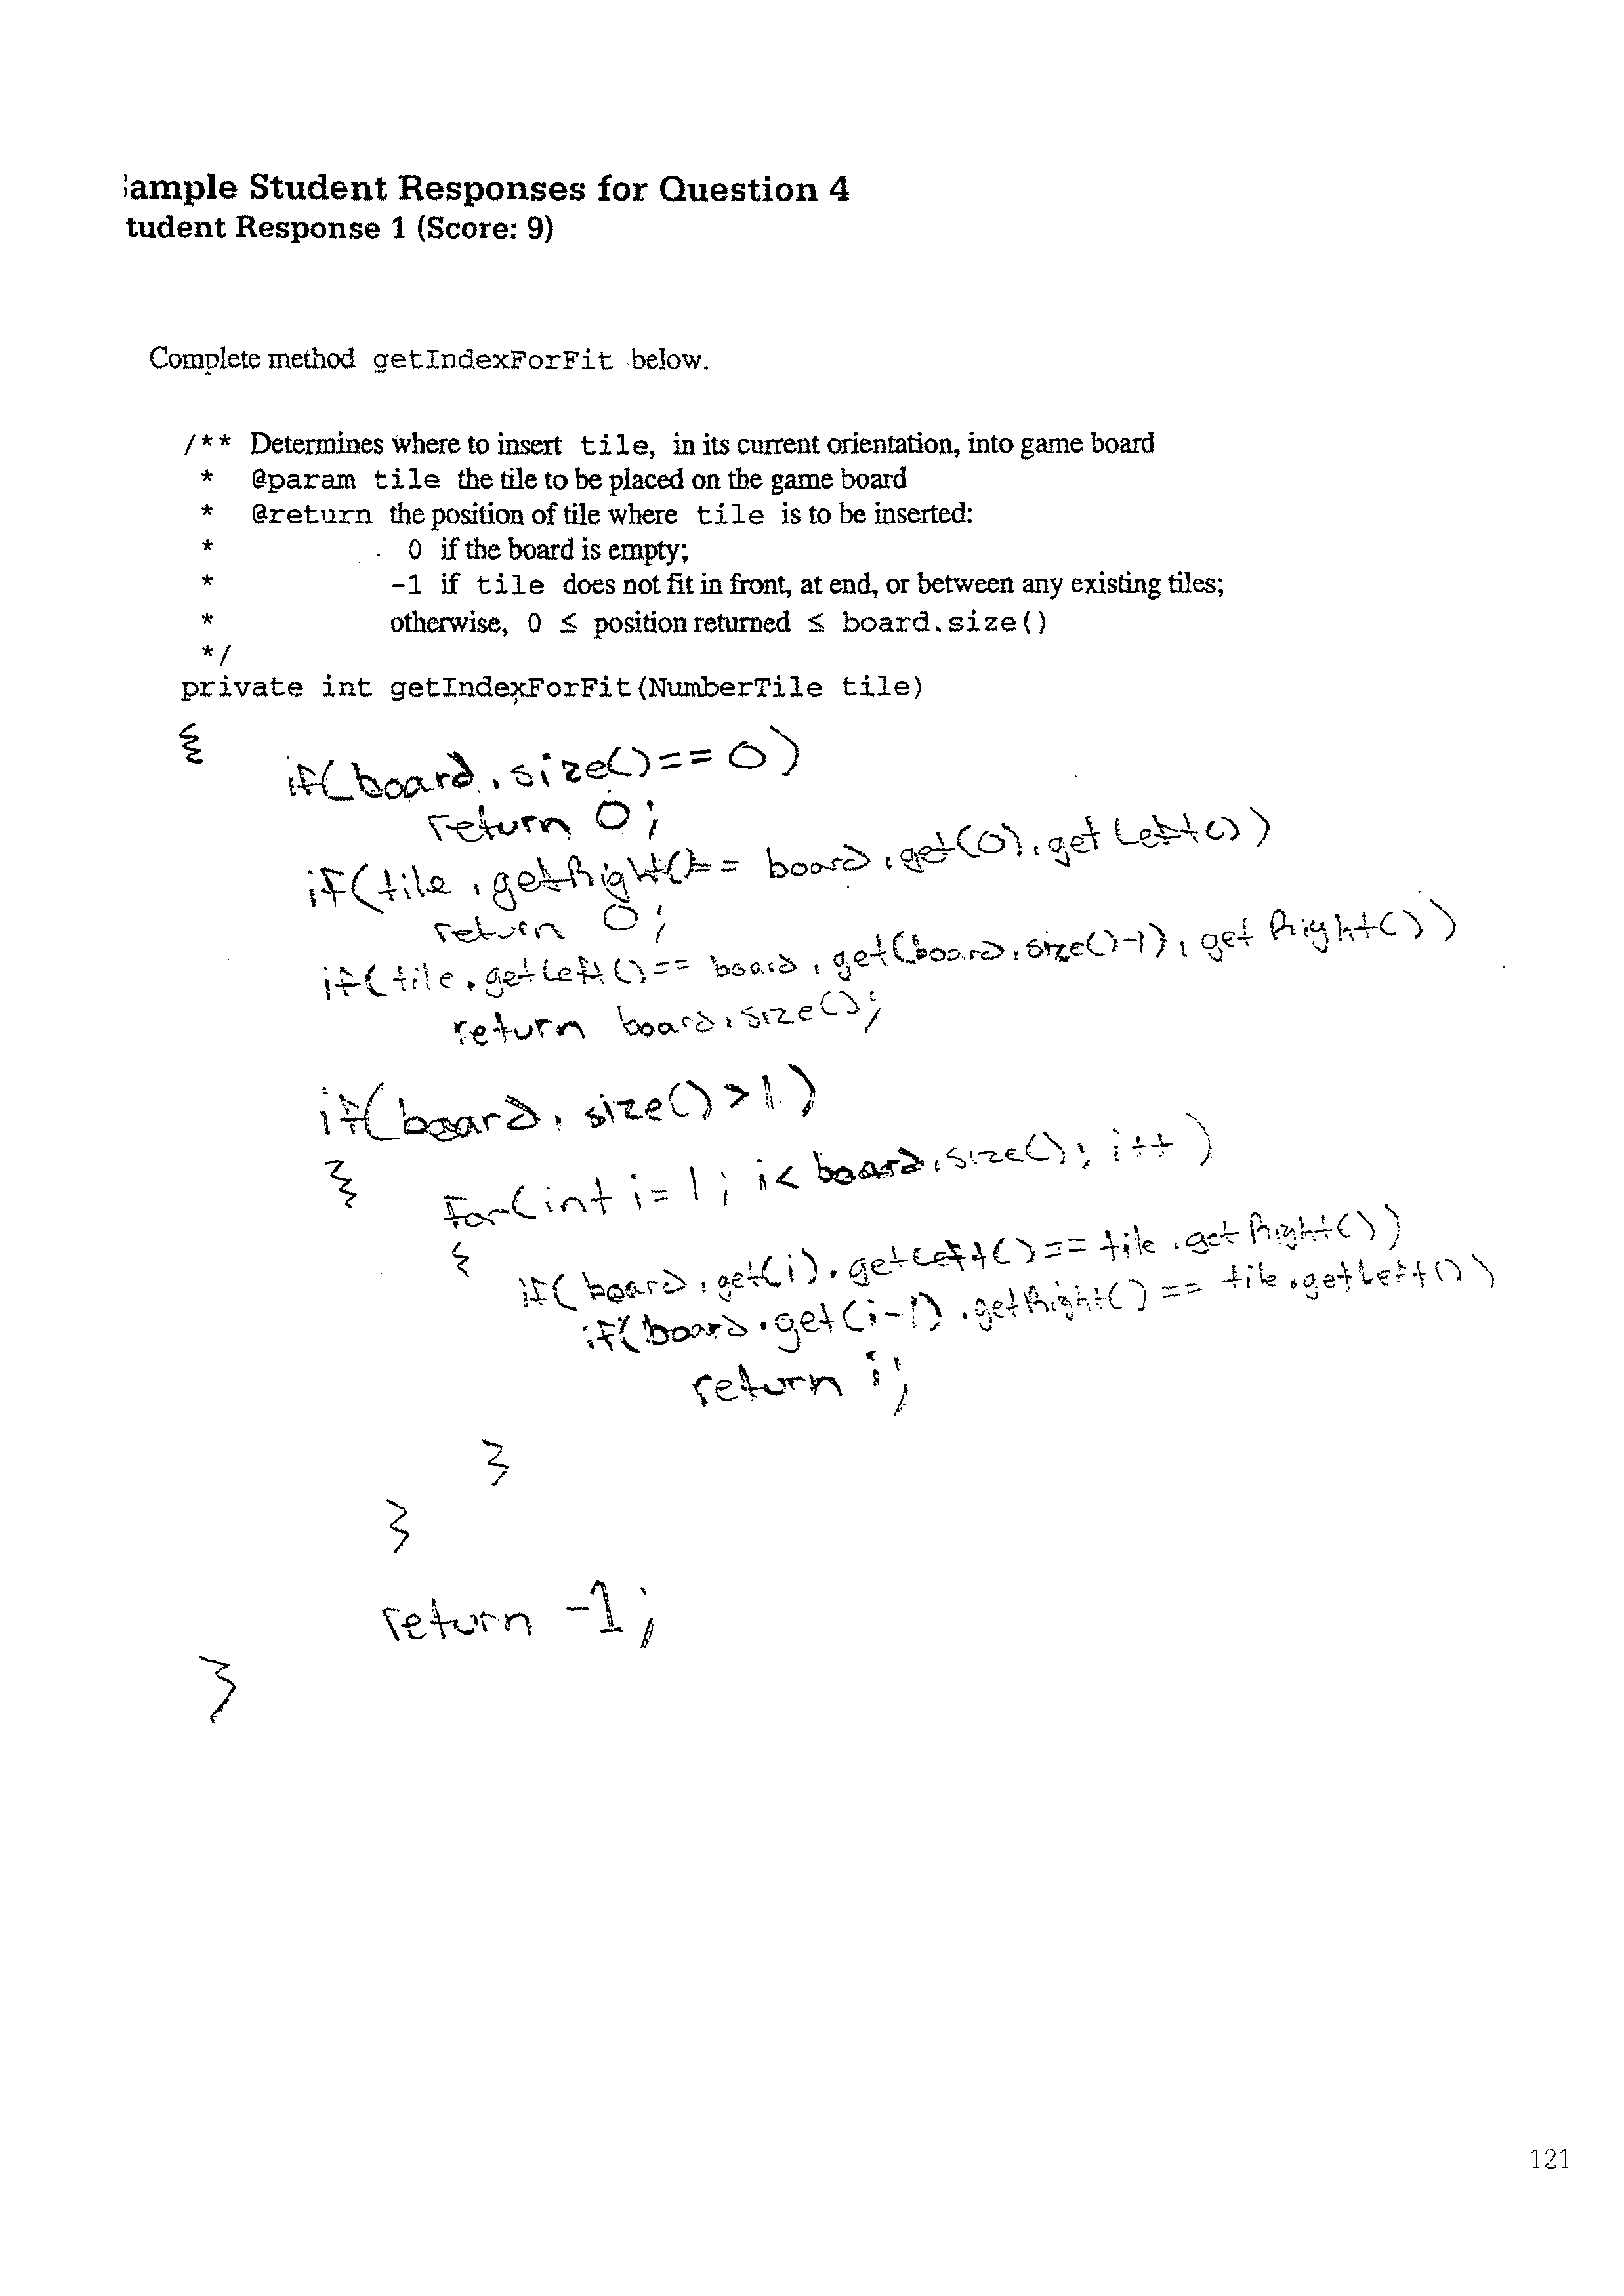 ample Student Responses for Question 4
tudent Response 1 (Score: 9)
Complete method getIndexForFit below.
/** Determines where to insert tile, in its current orientation, into game board
* @param tile the tile to be placed on the game board
* @return the position of tile where tile is to be inserted:
* 0 if the board is empty;
* -1 if tile does not fit in front, at end, or between any existing tiles;
* otherwise, 0 ≤ position returned ≤ board.size()
*/
private int getIndexForFit(NumberTile tile)
{
if(board.size()==0)
return 0;
if(tile.getRight()== board.get(0).getLeft())
return 0;
if(tile.getLeft()== board.get(board.size()-1).getRight())
return board.size();
if(board.size()>1)
{
for(int i=1; i<board.size(); i++)
{
if(board.get(i).getLeft()==tile.getRight())
if(board.get(i-1).getRight() == tile.getLeft())
return i;
}
}
return -1;
}
121